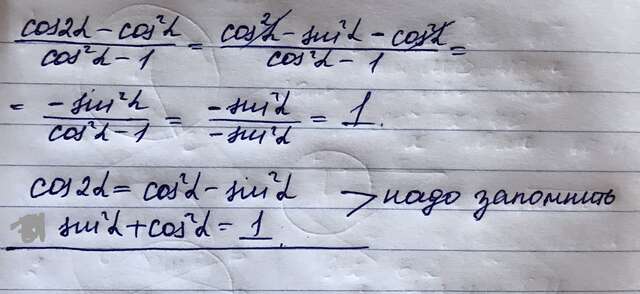 (cos2α - cos²α)/(cos²α - 1) = (cos²α - sin²α - cos²α)/(cos²α - 1) =
= (-sin²α)/(cos²α - 1) = (-sin²α)/(-sin²α) = 1.
cos2α = cos²α - sin²α > надо запомнить
sin²α + cos²α = 1.